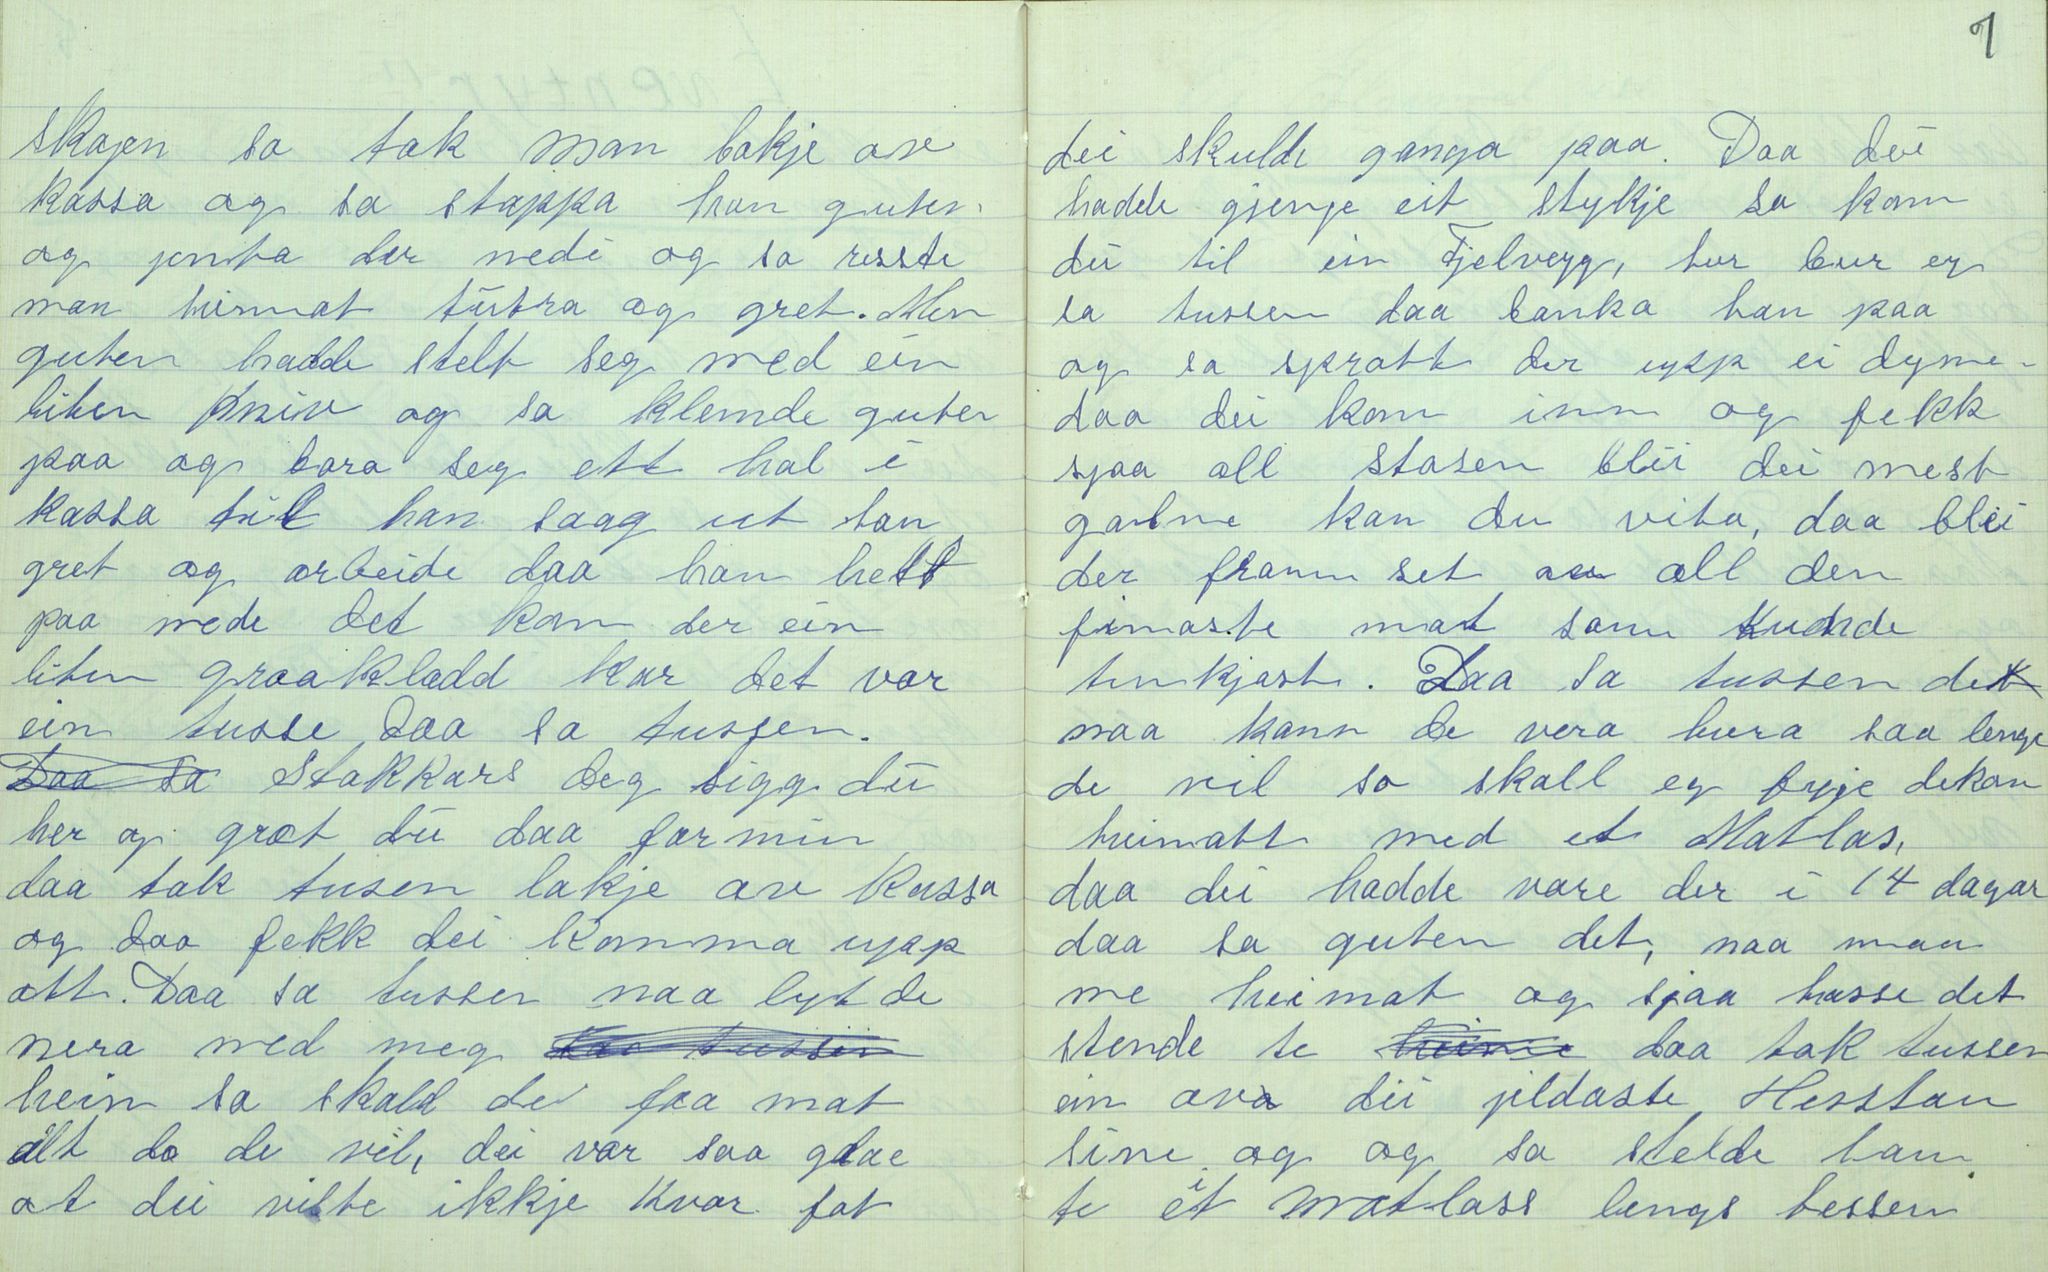 skogen so tok man lokje ov
kassa og so stappa han guten
og jenta der nedi og so reiste
man heimat tutra og gret. Men
guten hadde stelt seg med ein
liten Kniv og so klemde guten
paa og bora seg ett hol i
kassa til han saag ut han
gret og arbeide daa han helt
paa mede det kom der ein
liten graakladd kar det var
ein tusse Daa sa tussen.
Stakkars deg sigg du
her og græt du daa for min
daa tok tusen lokje ov Kassa
og daa fekk dei komma upp
ott. Daa sa tussen naa lyt de
vera med meg
heim so skald de faa mat
alt do de vil, dei var saa glae
at dei viste ikkje Kvor fot
7
dei skulde ganga paa. Daa dei
hadde gjenge eit stykje so kom
dei til ein Fjelvegg, her bur eg
sa tussen daa banka han paa
og so spratt der upp ei dyme
daa dei kom inn og fekk
sjaa all stasen blei dei mest
galne kan du vita, daa blei
der fram set av all den
finaste mat som Kunde
tenkjast. Daa sa tussen
naa kann de vera hera saa lenge
de vil so skall eg fyje dekan
heimatt med et Matlas,
daa dei hadde vore der i 14 dagar
daa sa guten det, naa maa
me heimat og sjaa hosse det
stende te daa tok tussen
ein ova dei jildaste Hesstan
sine og og so stelde han
te eit matlass lengs bessen